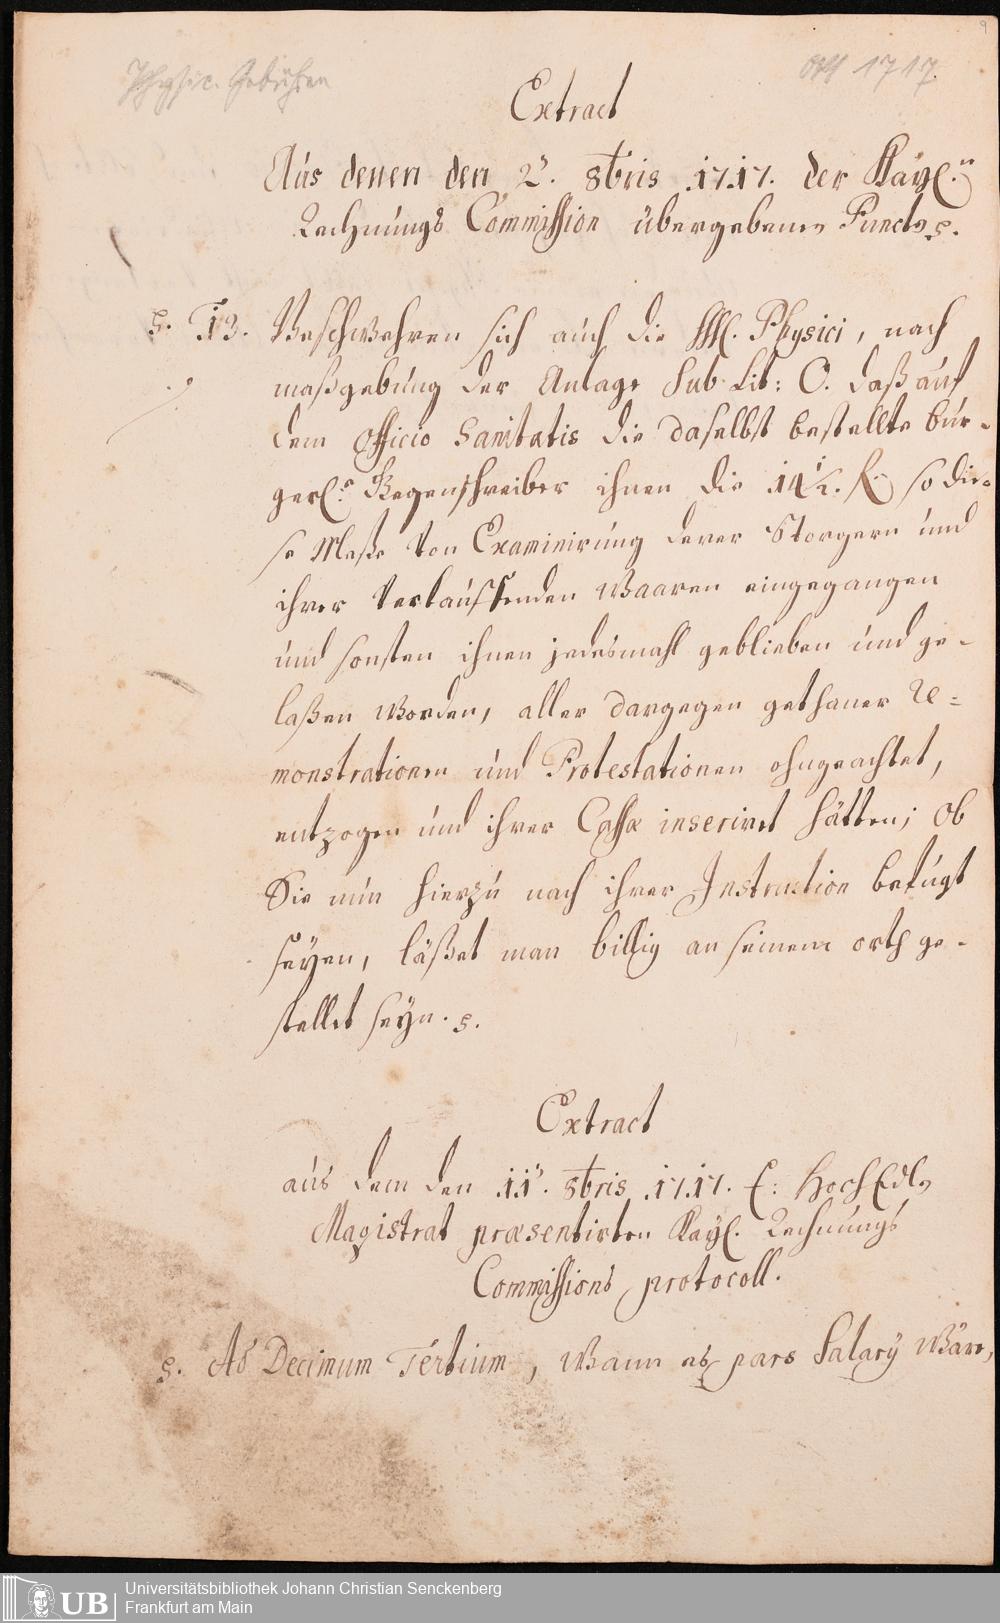 9
Physic. Gebühren
Oct 1717.
Extract
Aus denen den 2t. 8bris 1717. der Kayl.n
Rechnungs Commission übergebenen Punctis.
§. 13. Beschwehren sich auch die HHl. Physici, nach
maßgebung der Anlage sub Lit: O. daß auf
dem Officio Sanitatis die daselbst bestellte bür-
gerl.e Gegenschreiber ihnen die 14½. R. so die-
se Meße von Examinirung derer Storgern und
ihrer verkauffenden Waaren eingegangen
und sonsten ihnen jedesmahl geblieben und ge-
laßen worden, aller dargegen gethaner Re=
monstrationen und Protestationen ohngeachtet,
entzogen und ihrer Cassæ inserirt hätten; Ob
Sie nun hierzu nach ihrer Instruction befugt
seyen, läßet man billig an seinem orth ge-
stellet seyn. §.
Extract
aus dem den 11t. 8bris 1717. E: HochEdln
Magistrat præsentirten Kayl. Rechnungs
Commissions protocoll.
§. Ad Decimum Tertium, Wann es pars Salary wäre,
UB
Universitätsbibliothek Johann Christian Senckenberg
Frankfurt am Main